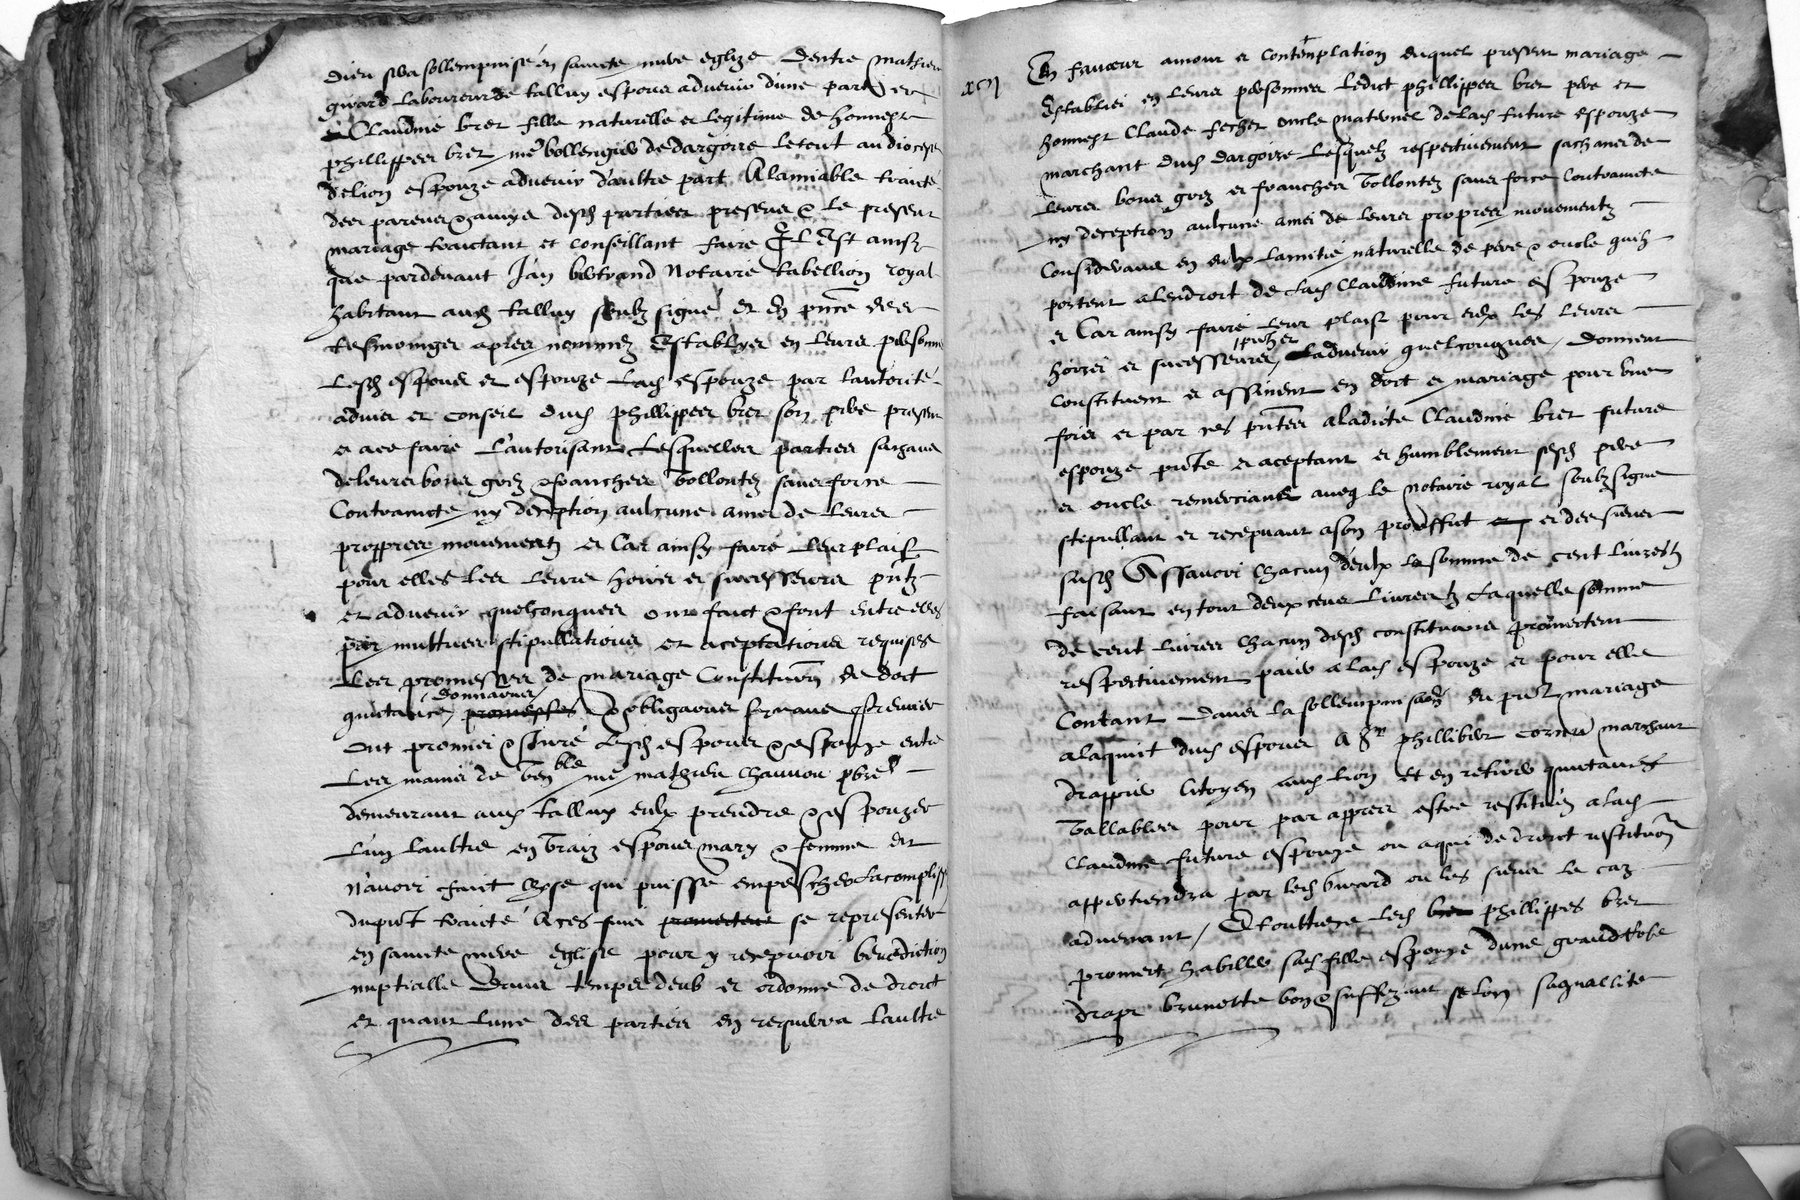 dieu sera sollempnisé en saincte mere eglize dentre mathieu
girard laboureur de talluy espoux advenir d'une part et
Claudine bret fille naturelle et legitime de honnest
phillippes bret me bollengier de dargoire le tout au dioceze
de lion espouze advenir d'aultre part A lamiable traité
des parens & amys desd parties presens & le present
mariage traictant et conseillant faire Il Est ainsy
que pardevant Jan bertrand Notaire tabellion royal
habitant aud talluy soubz signé et en pnce des
tesmoingz apres nommez Establyes en leurs personnes
Lesd espoux et espouze lad espouze par lautorité
advis et conseil dud phillippes bret son pere present
et a ce faire l'autorisant Lesquelles parties sachans
de leurs bons grez & franches vollontez sans force
Contraincte ny deception aulcune ains de leurs
proppres movementz et Car ainsy faire leur plaist
pour elles les leurs hoirs et successeurs pntz
et advenir quelconques ont faict & font entre elles
par mutues stipullations et aceptations requises
Les promesses de mariage Constitution de doct
quictance, donnations, promesses & obligations suyvans Premier
Ont promis & Juré lesd espoux & espouze entre
Les mains de venble me mathieu chauvon pbre
demeurant aud talluy eulx prendre & espouzer
L'ung laultre en vraiz espoux mary & femme et
n'avoir faict chose qui puisse empescher lacompliss
du pnt traicté A ces fins promectent se representer
en saincte mere eglise pour y recepvoir benediction
nuptialle Dans temps deub et ordonné de droict
et quant lune des parties en requerra laultre
En faveur amour et contemplation duquel present mariage
Establiz en leurs personnes ledict phillippes bret pere et
honnest Claude fechet oncle maternel de lad future espouze
marchant dud dargoire Lesquelz respectivement sachans de
leurs bons grez et franches vollontez sans force contraincte
ny deception aulcune ains de leurs propres movementz
considerans en eulx lamitié naturelle de pere & oncle quilz
portent alendroit de lad Claudine future espouze
et Car ainsy faire leur plaist pour eulx les leurs
hoirs et successeurs pntz et advenir quelconques, donnent
constituent et assinent en doct et mariage pour une
fois et par ces pntes a ladicte Claudine bret future
espouze pnte et aceptant et humblement sesd pere
et oncle remerciant aveq le notaire royal soubzsigne
stipullant et recepvant a son prouffict et des siens
susd Assavoir chacun deulx la somme de cent livrestz
faisant en tout deux cens livrestz Laquelle somme
de cent livres chacun desd constituans promectent
respectivement paier a lad espouze et pour elle
Contant dans la sollempnisaon du pnt mariage
alaquit dud espoux A sr phillibert cornu marchant
drappier Citoyen dud lion et en retirer quictances
vallables pour par appres estre restituez a lad
Claudine future espouze ou a qui de droict restituon
appertiendra par led Girard ou les siens le caz
advenant, Et oultre led phillippes bret
promect habiller sad fille espouze dune grand robe
drapt brunette bon & suffizant selon sa quallité